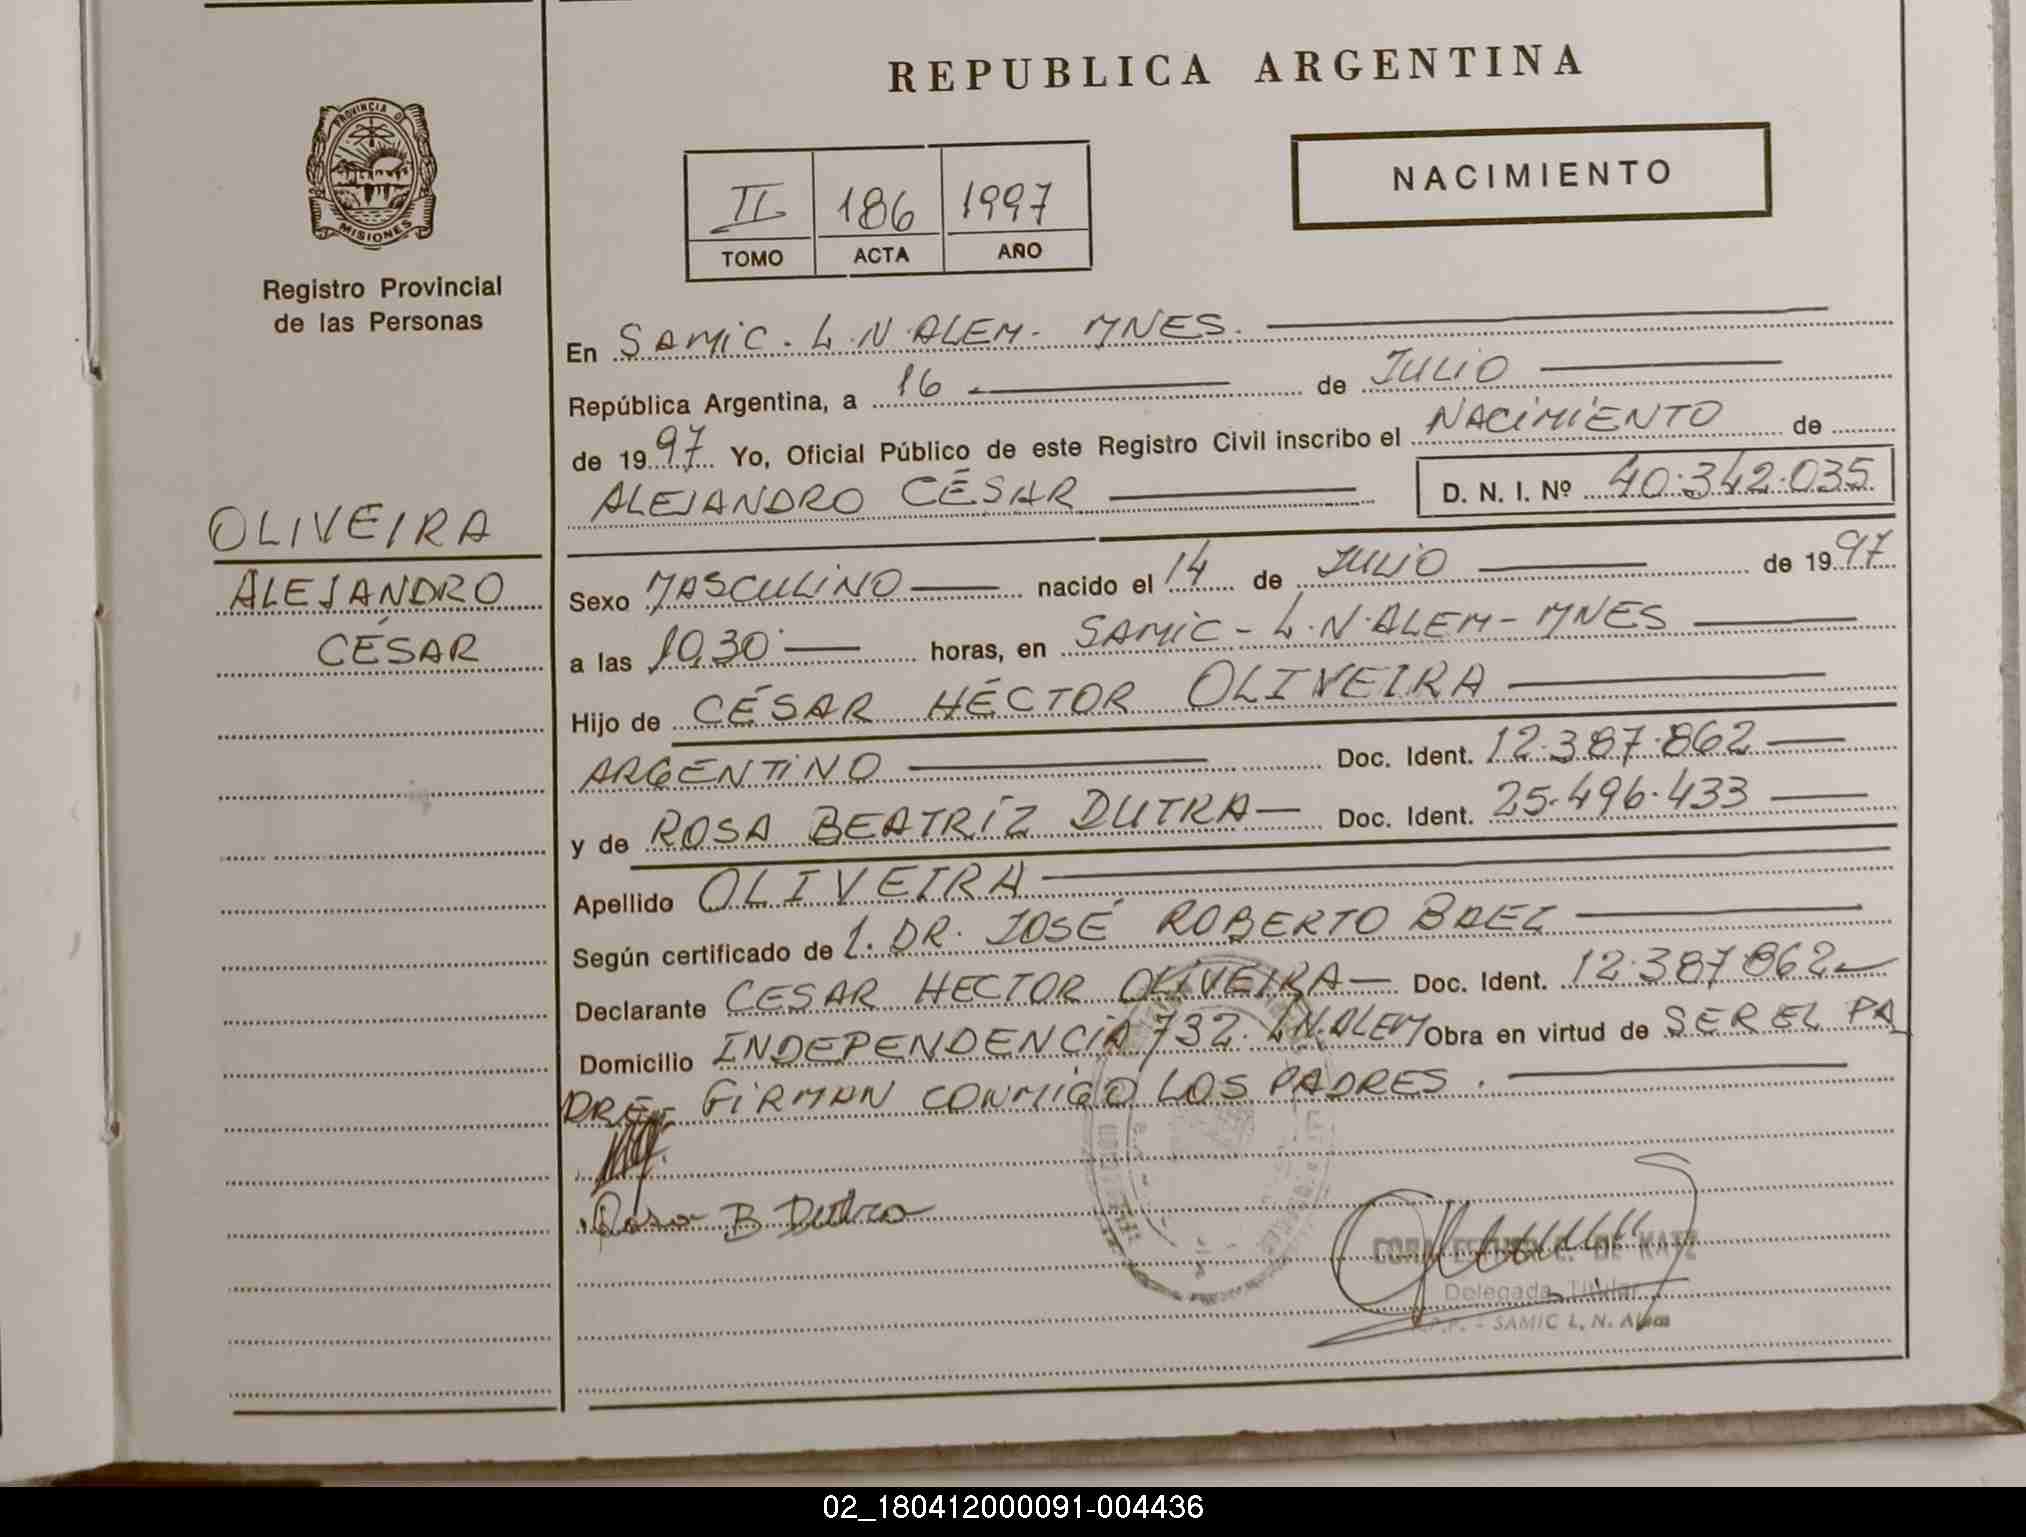 REPUBLICA ARGENTINA
PROVINCIA D
MISIONES
Registro Provincial
de las Personas
II 186 1997
TOMO ACTA AÑO
NACIMIENTO
En SAMIC. L.N. ALEM- MNES.
República Argentina, a 16 de JULIO
de 1997 Yo, Oficial Público de este Registro Civil inscribo el NACIMIENTO de
ALEJANDRO CÉSAR D. N. I. Nº 40.342.035
OLIVEIRA
ALEJANDRO
CÉSAR
Sexo MASCULINO nacido el 14 de JULIO de 1997
a las 10,30 horas, en SAMIC - L.N. ALEM - MNES
Hijo de CÉSAR HÉCTOR OLIVEIRA
ARGENTINO Doc. Ident. 12.387.862
y de ROSA BEATRÍZ DUTRA Doc. Ident. 25.496.433
Apellido OLIVEIRA
Según certificado de 1. DR. JOSÉ ROBERTO BAEZ
Declarante CESAR HECTOR OLIVEIRA Doc. Ident. 12.387.862
Domicilio INDEPENDENCIA 732. L.N. ALEM Obra en virtud de SER EL PA
DRE- FIRMAN CONMIGO LOS PADRES.
Rosa B Dutra
DE KATZ
Delegada Titular
SAMIC L. N. Alem
02_180412000091-004436